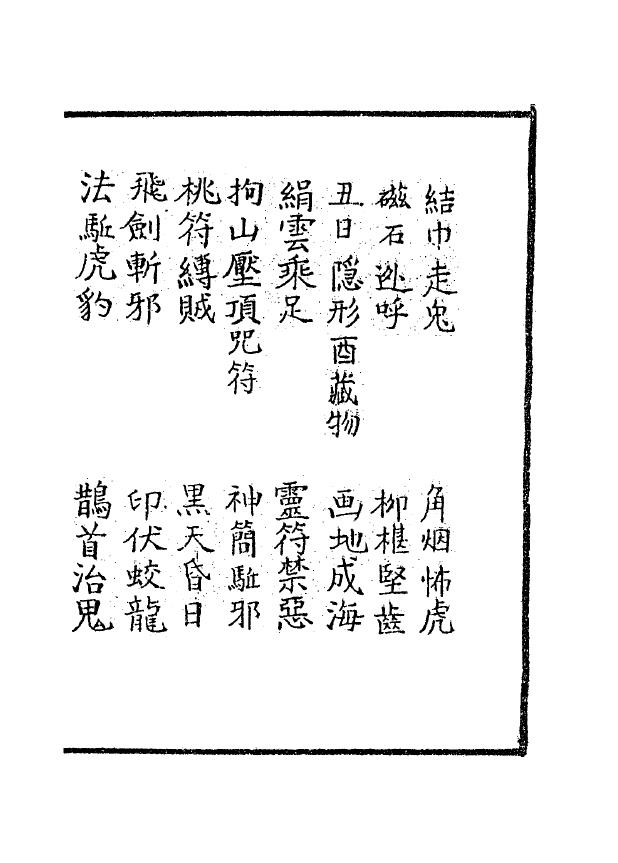 結巾走鬼　角烟怖虎
磁石迯呼　柳椹堅齒
丑日隠形酉藏物　画地成海
絹雲乘足　靈符禁惡
拘山壓頂咒符　神簡駈邪
桃符縛賊　黑天昏日
飛劍斬邪　印伏蛟龍
法駈虎豹　鵲首治鬼